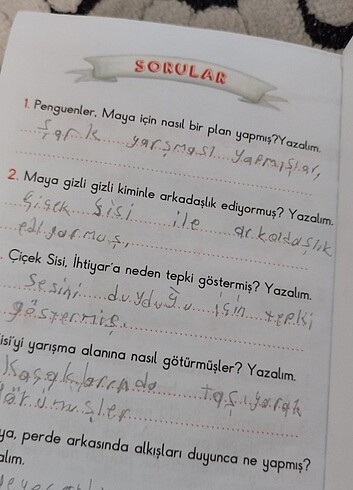 SORULAR
1. Penguenler, Maya için nasıl bir plan yapmış? Yazalım.
Şarkı yarşması yapmışlar,
2. Maya gizli gizli kiminle arkadaşlık ediyormuş? Yazalım.
Çiçek Sisi ile arkadaşlık
ediyormuş,
. Çiçek Sisi, İhtiyar'a neden tepki göstermiş? Yazalım.
Sesini duyduğu için tepki
göstermiş.
isi'yi yarışma alanına nasıl götürmüşler? Yazalım.
taşıyarak
ya, perde arkasında alkışları duyunca ne yapmış?
alım.